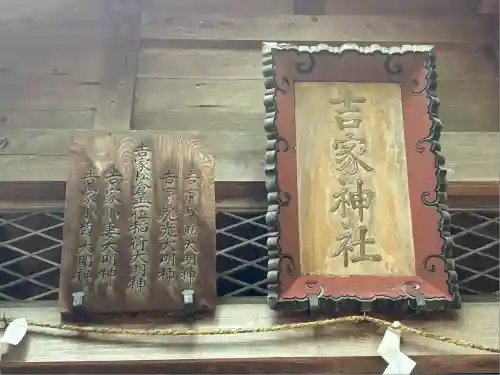 吉家神社
吉市
助大明神
吉市
光大明神
吉家松倉正一位稲荷大明神
吉家小妻大明神
吉家小菊大明神